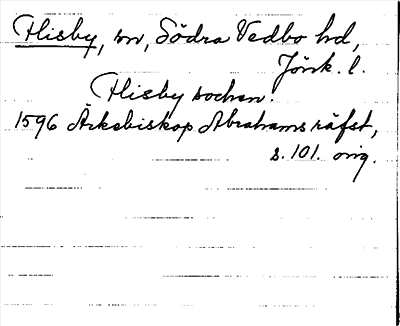 Flisby, sn, Södra Vedbo hd,
Jönk. l.
Flisby sochen.
1596 Ärkebiskop Abrahams räfst,
s. 101. orig.